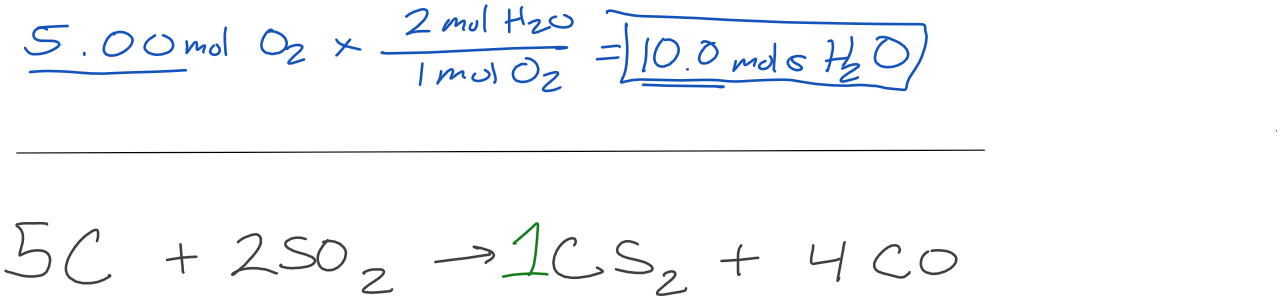 5.00 mol O₂ × 2 mol H₂O / 1 mol O₂ = 10.0 mols H₂O
5C + 2SO₂ → 1CS₂ + 4CO